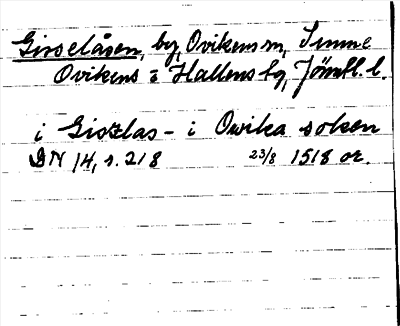 Gisselåsen, by, Ovikens sn, Sunne
Ovikens o Hallens tg, Jämtl. l.
i Gisslas - i Owika soken
DN 14, s. 218 23/8 1518 or.